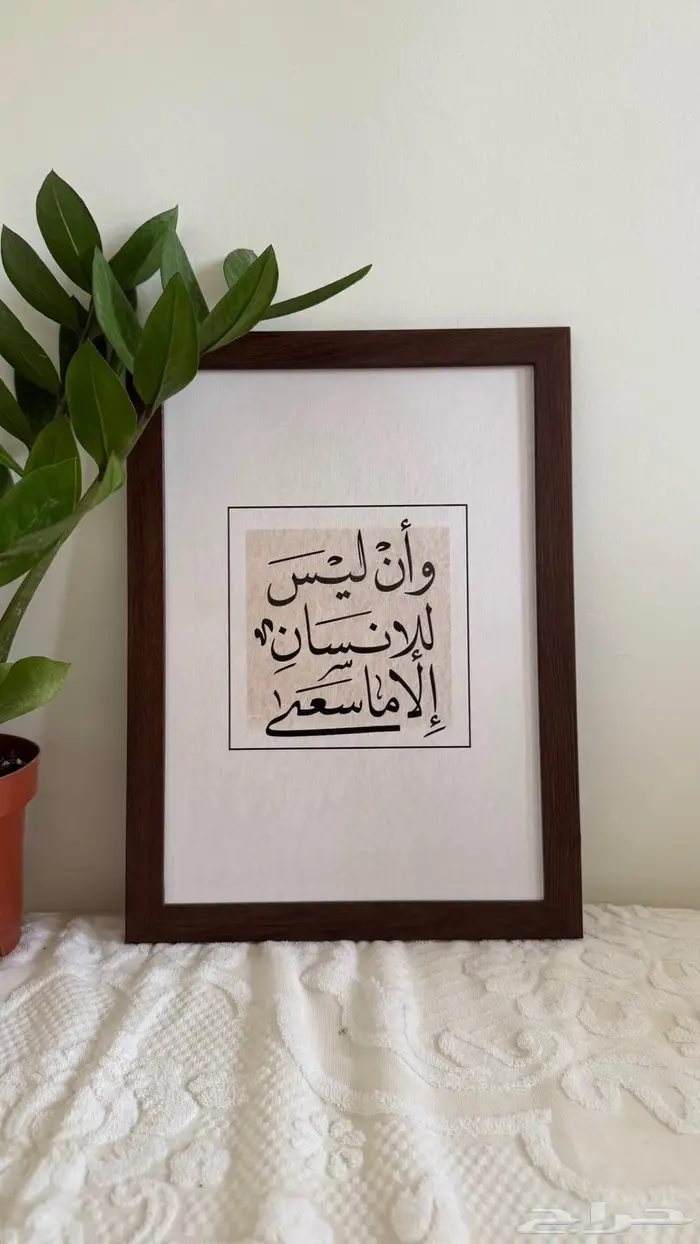 وأنْ ليْسَ
للإنسَانِ
إِلا ما سَعَىٰ
حراج